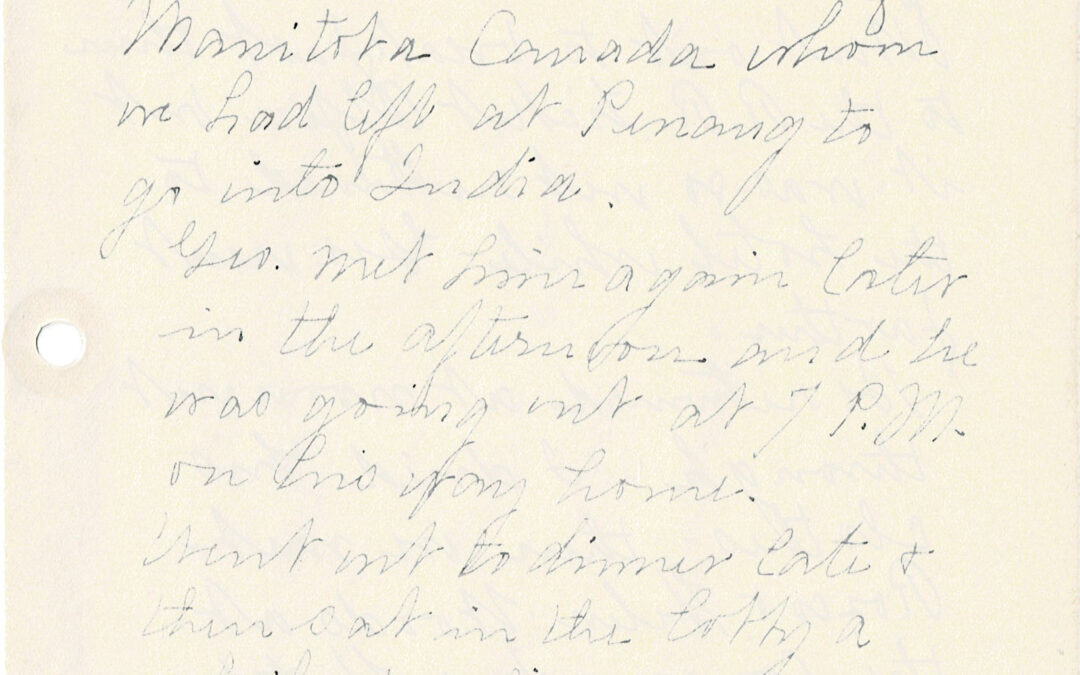 Manitoba Canada whom
we had left at Penang to
go into India.
Geo. met him again later
in the afternoon and he
was going out at 7 P.M.
on his way home.
Went out to dinner late &
then sat in the lobby a